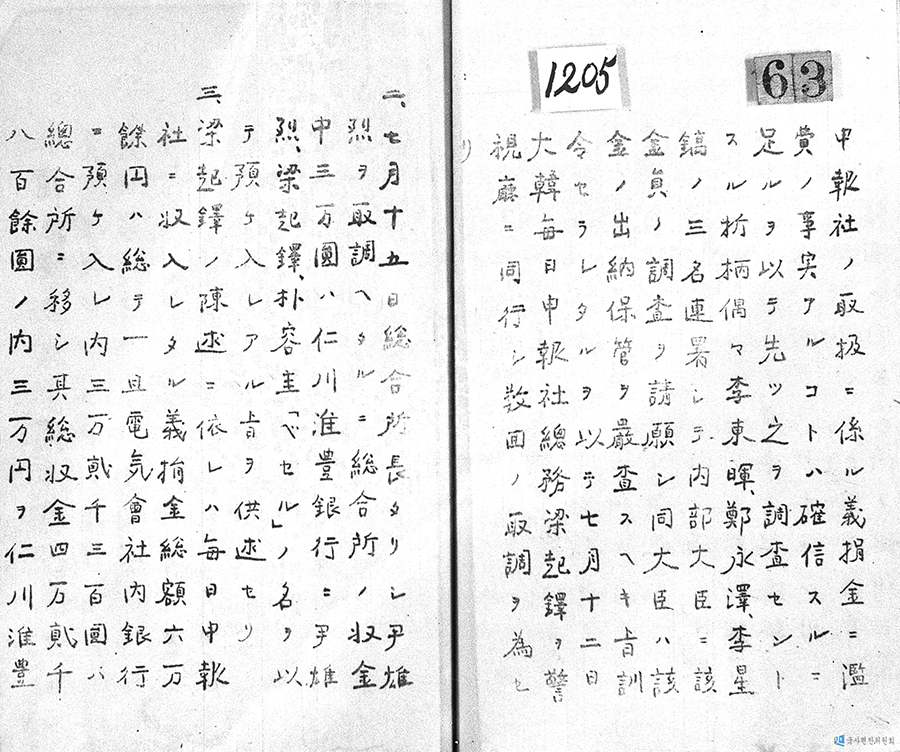 63
1205
申報社ノ取扱ニ係ル義捐金ニ濫
費ノ事実アルコトハ確信スルニ
足ルヲ以テ先ツ之ヲ調査セント
スル折柄偶マ李東暉、鄭永澤、李星
鎬ノ三名連署シテ内部大臣ニ該
金員ノ調査ヲ請願シ同大臣ハ該
金ノ出納保管ヲ嚴査スヘキ旨訓
令セラレタルヲ以テ七月十二日
大韓每日申報社總務梁起鐸ヲ警
視廳ニ同行シ数回ノ取調ヲ為セ
リ
二、七月十五日総合所長タリシ尹雄
烈ヲ取調ヘタルニ総合所ノ収金
中三万圓ハ仁川淮豊銀行ニ尹雄
烈、梁起鐸、朴容圭「ベセル」ノ名ヲ以
テ預ケ入レアル旨ヲ供述セリ
三、梁起鐸ノ陳述ニ依レハ每日申報
社ニ収入レタル義捐金総額六万
餘円ハ総テ一旦電気會社内銀行
ニ預ケ入レ内三万貳千三百圓ハ
總合所ニ移シ其総収金四万貳千
八百餘圓ノ内三万円ヲ仁川淮豊
국사편찬위원회